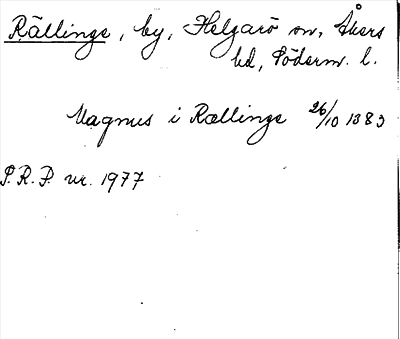 Rällinge, by, Helgarö sn, Åkers
hd, Söderm. l.
Magnus i Rællinge 26/10 1383
P.R.P. nr. 1977